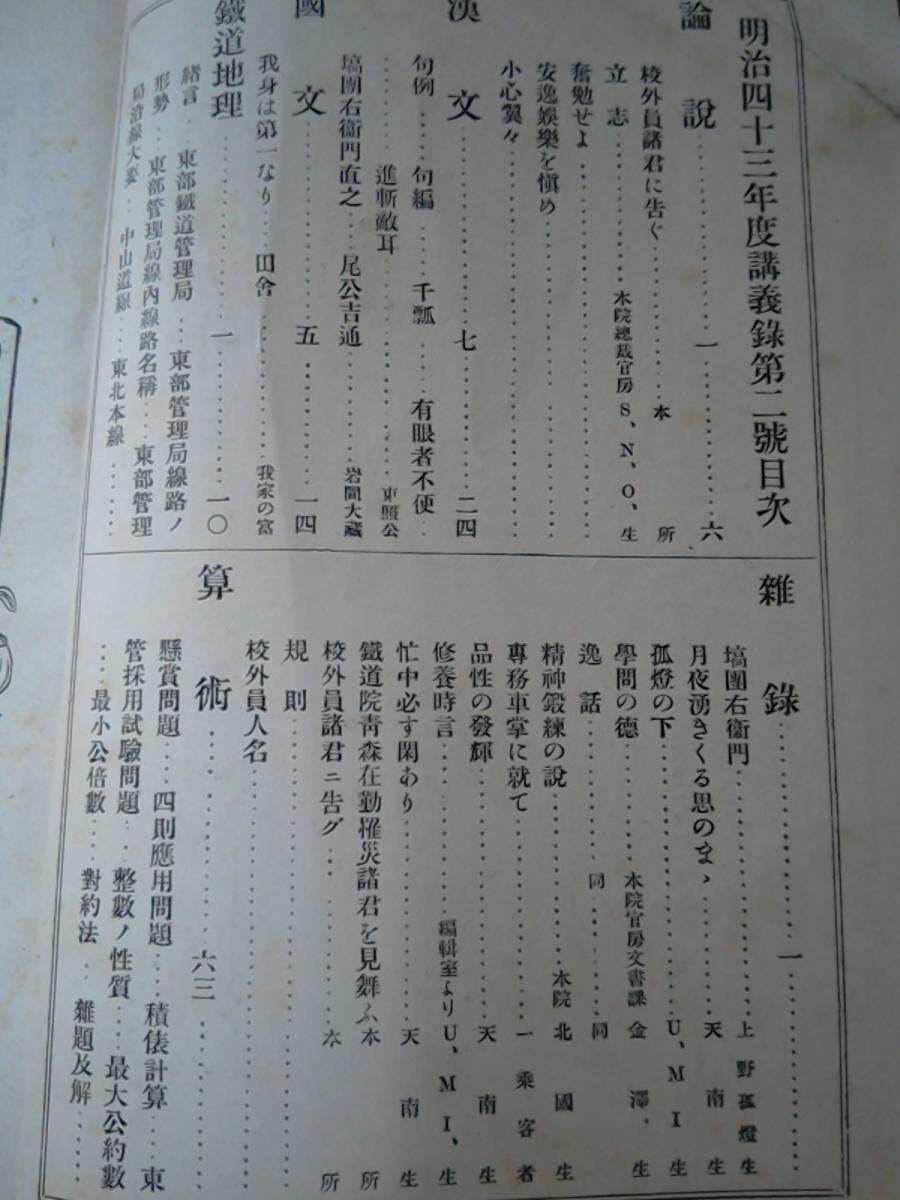 明治四十三年度講義錄第二號目次
論說………一………六
校外員諸君に告ぐ………本所
立志………本院總裁官房S、N、O、生
奮勉せよ………
安逸娛樂を愼め………
小心翼々………
漢文………七………二四
句例……句編……千瓢……有眼者不便
……進斬敵耳………東照公
塙團右衞門直之……尾公吉通………岩間大藏
國文………五………一四
我身は第一なり……田舍………我家の富
鐵道地理………一………一〇
緖言……東部鐵道管理局…東部管理局線路ノ
形勢……東部管理局線內線路名稱……東部管理
局沿線大要……中山道線……東北本線………
雜錄………一………
塙團右衞門………上野孤燈生
月夜湧きくる思のまゝ………天南生
孤燈の下………U、M I 生
學問の德………本院官房文書課金澤、生
逸話………同………同
精神鍛練の說………本院北國生
專務車掌に就て………一乘客者
品性の發輝………天南生
修養時言………編輯室よりU、M I、生
忙中必す閑あり………天南生
鐵道院靑森在勤罹災諸君を見舞ふ本所
校外員諸君ニ告グ………本所
規則………
校外員人名………
算術………六三………
懸賞問題……四則應用問題……積俵計算……東
管採用試驗問題……整數ノ性質……最大公約數
……最小公倍數……對約法……雜題及解……